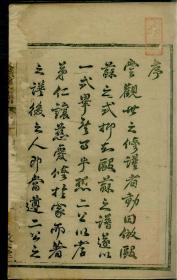 序
嘗觀世之修譜者動曰倣歐
蘇之式抑知歐蘇之譜遂以
一式畢乎
二公以君
弟仁讓慈愛修於家而著
之譜後之人即當遵二公之